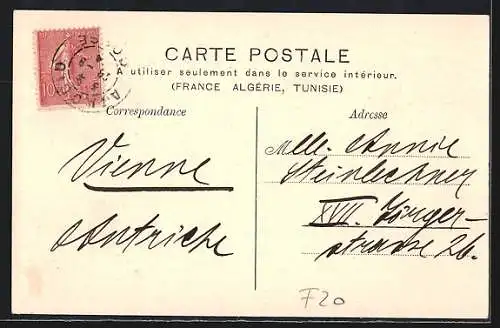 10
CARTE POSTALE
A utiliser seulement dans le service intérieur.
(FRANCE ALGÉRIE, TUNISIE)
Correspondance
Adresse
Vienne
Autriche
Mlle. Annie
Steinlechner
XVII. Jörger-
strasse 26.
F20